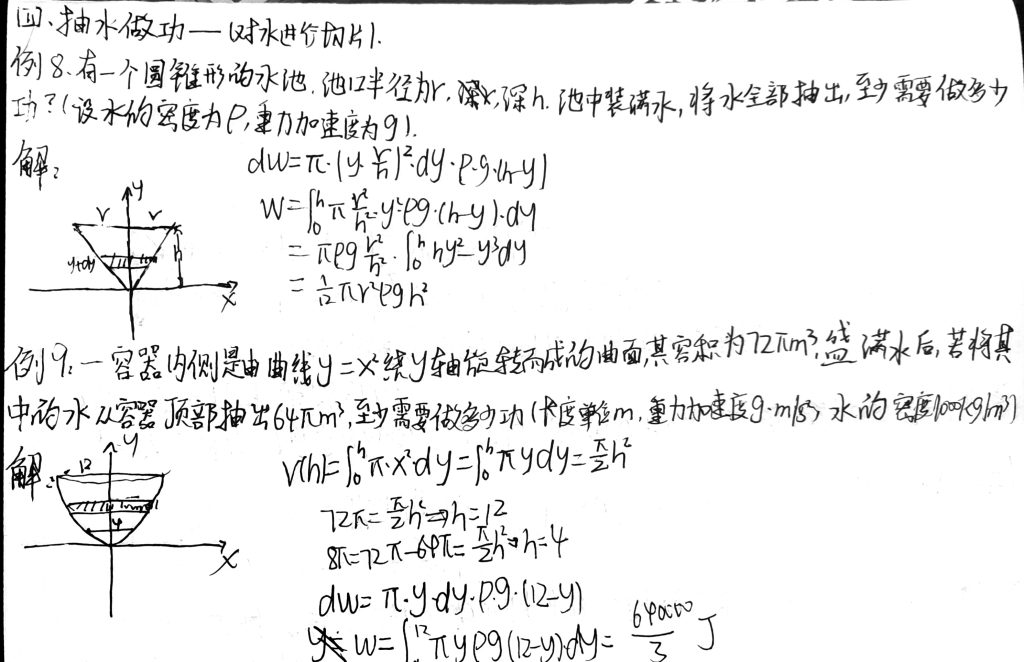 四、抽水做功——(对水进行切片).
例8、有一个圆锥形的水池,池口半径为r,深h.池中装满水,将水全部抽出,至少需要做多少
功?(设水的密度为ρ,重力加速度为g).
解:
dW=π·(y·r/h)²·dy·ρ·g·(h-y)
W=∫₀ʰπ r²/h²·y²·ρg·(h-y)·dy
=πρg r²/h²·∫₀ʰ hy²-y³dy
=1/12 πr²ρgh²
y
r r
h
y+dy
x
例9:一容器内侧是由曲线y=x²绕y轴旋转而成的曲面,其容积为72πm³,盛满水后,若将其
中的水从容器顶部抽出64πm³,至少需要做多少功(长度单位m,重力加速度g·m/s²,水的密度1000kg/m³)
解:
V(h)=∫₀ʰπ·x²·dy=∫₀ʰπydy=π/2 h²
72π=π/2 h²⇒h=12
8π=72π-64π=π/2 h²⇒h=4
dW=π·y·dy·ρ·g·(12-y)
W=∫¹²πyρg(12-y)·dy= /3 J
y
12
4
x